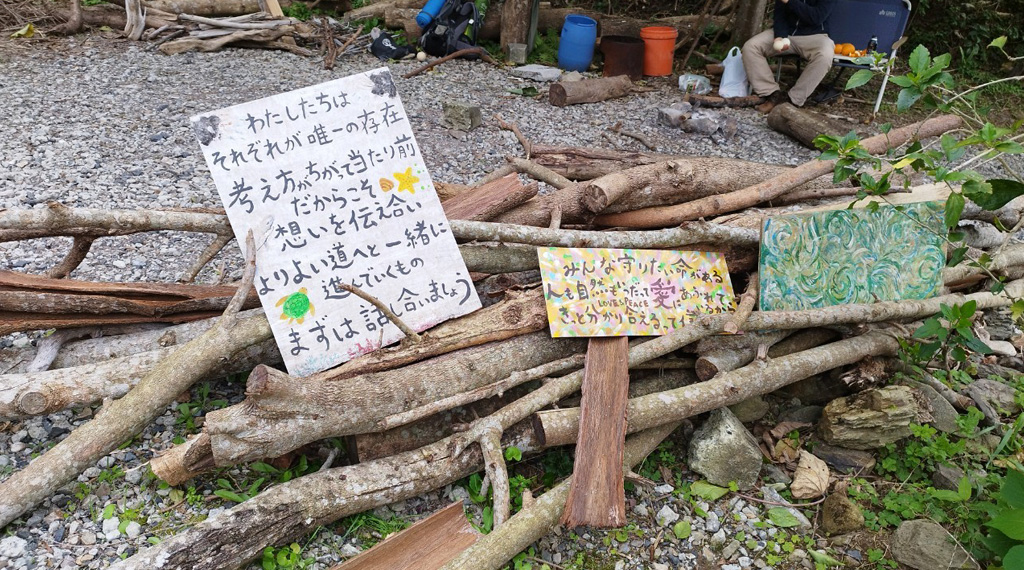 わたしたちは
それぞれが唯一の存在
考え方がちがって当たり前
だからこそ
想いを伝え合い
よりよい道へと一緒に
進んでいくもの
まずは話し合いましょう
みんな守りたい命がある
人も自然もいったい愛に
LOVE & PEACE
きっと分かり合えるってイ